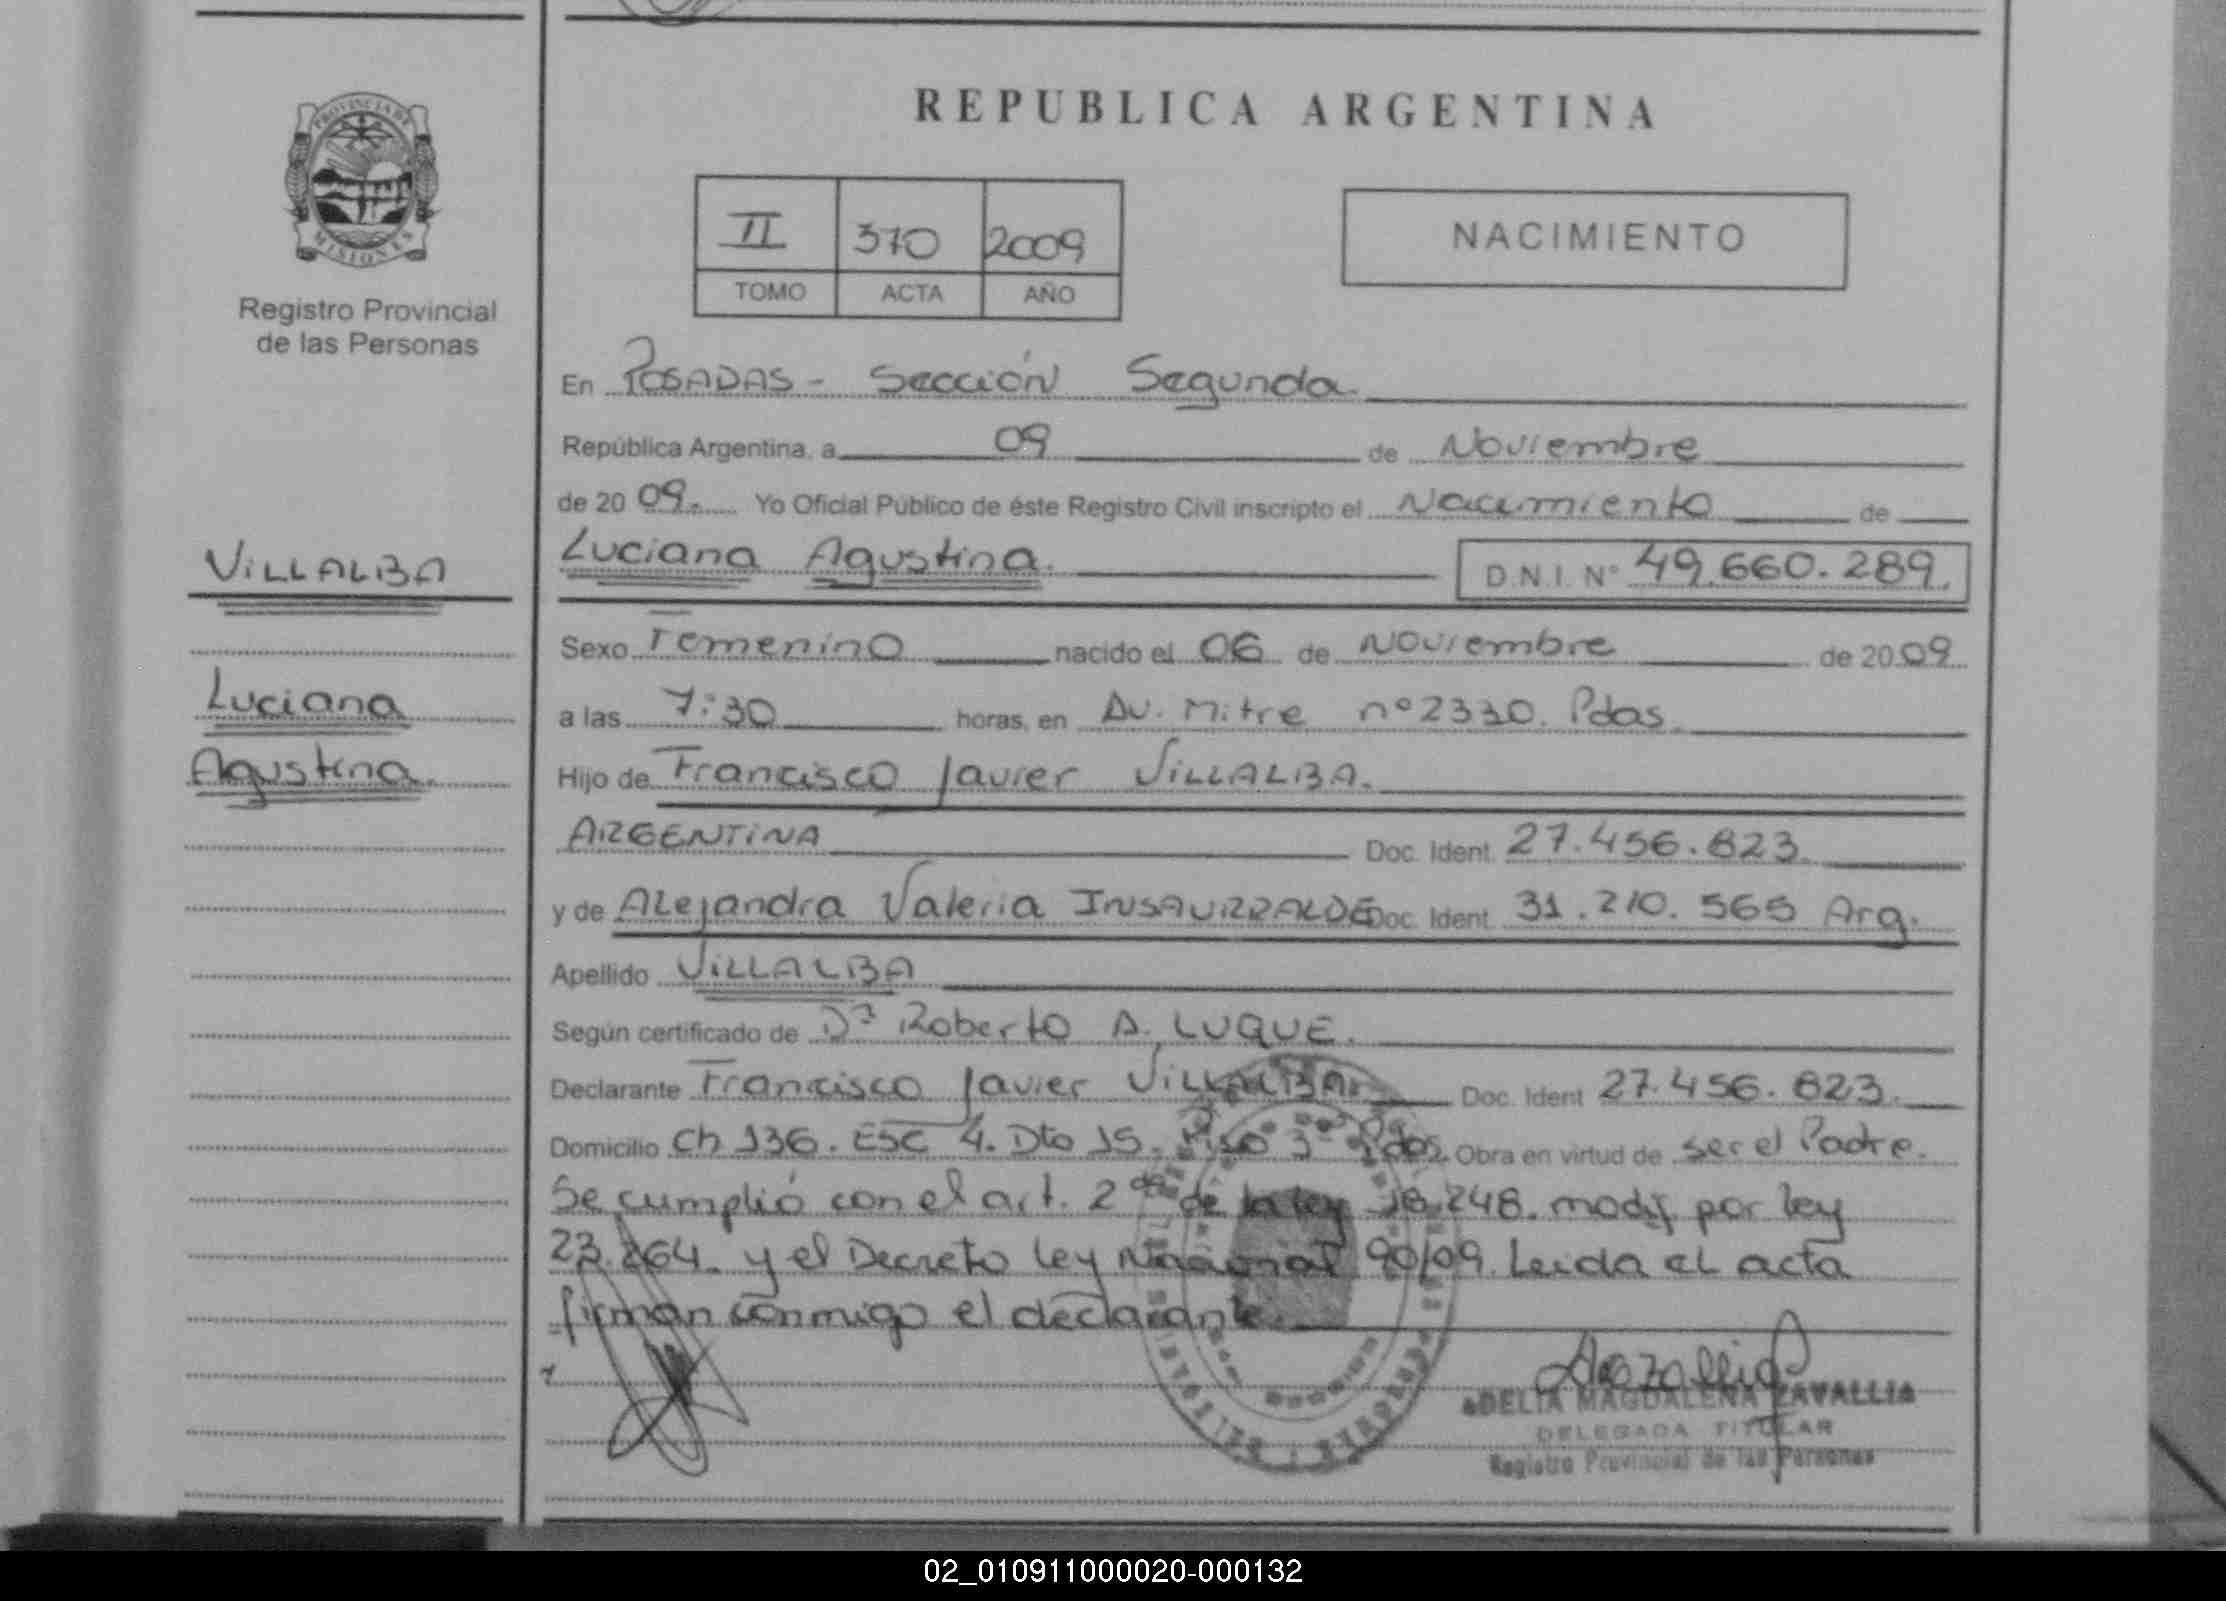 REPUBLICA ARGENTINA
PROVINCIA DE
MISIONES
Registro Provincial
de las Personas
II 370 2009
TOMO ACTA AÑO
NACIMIENTO
En POSADAS - Sección Segunda.
República Argentina, a 09 de Noviembre
de 20 09. Yo Oficial Público de éste Registro Civil inscripto el Nacimiento de
VILLALBA
Luciana
Agustina.
Luciana Agustina. D.N.I. N° 49.660.289.
Sexo Femenino nacido el 06 de Noviembre de 20 09
a las 7:30 horas, en Av. Mitre n° 2330. Pdas.
Hijo de Francisco Javier VILLALBA.
ARGENTINA Doc. Ident. 27.456.823.
y de Alejandra Valeria INSAURRALDE Doc. Ident. 31.210.565 Arg.
Apellido VILLALBA
Según certificado de Dr Roberto A. LUQUE.
Declarante Francisco Javier VILLALBA. Doc. Ident 27.456.823.
Domicilio Ch 136. ESC 4. Dto 15. Piso 3° Pdas. Obra en virtud de ser el Padre.
Se cumplió con el art. 2do de la ley 18.248. modif por ley
23.264. y el Decreto ley Nacional 90/09. Leida el acta
firman conmigo el declarante.
ADELIA MAGDALENA ZAVALLIA
DELEGADA TITULAR
Registro Provincial de las Personas
02_010911000020-000132